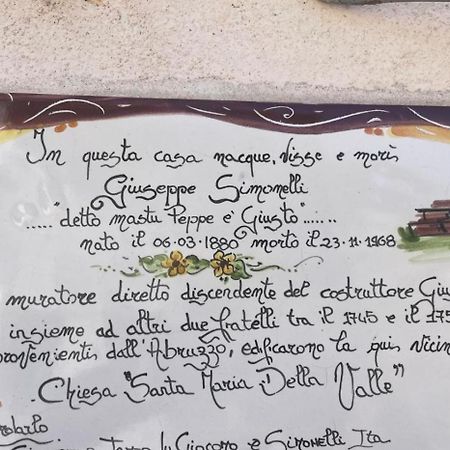 In questa casa nacque, visse e morì
Giuseppe Simonelli
....."detto mastu Peppe e' Giusto"......
nato il 06.03.1880 mortò il 23.11.1968
muratore diretto discendente del costruttore Giu
insieme ad altri due fratelli tra il 1745 e il 175
provenienti dall'Abruzzo, edificarono la qui vicin
Chiesa "Santa Maria Della Valle"
Simonelli Ita